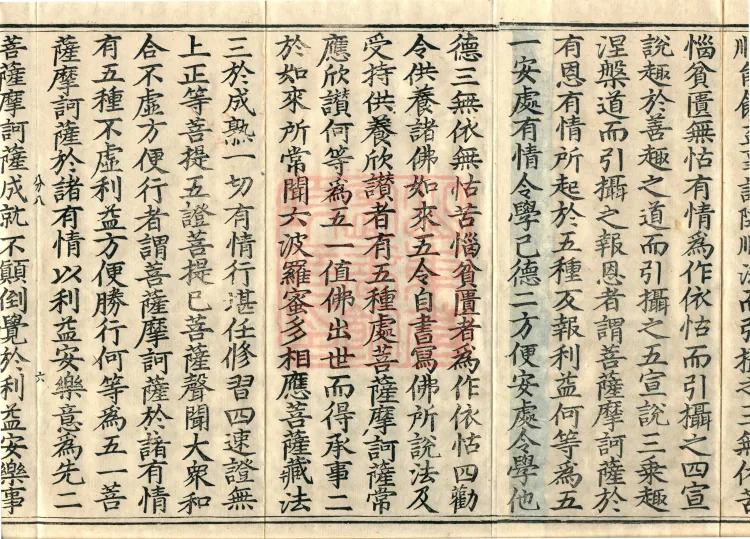 惱貧匱無怙有情為作依怙而引攝之四宣
說趣於善趣之道而引攝之五宣說三乘趣
涅槃道而引攝之報恩者謂菩薩摩訶薩於
有恩有情所起於五種反報利益何等為五
一安處有情令學己德二方便安處令學他
德三無依無怙苦惱貧匱者為作依怙四勸
令供養諸佛如來五令自書寫佛所說法及
受持供養欣讃者有五種處菩薩摩訶薩常
應欣讃何等為五一值佛出世而得承事二
於如來所常聞六波羅蜜多相應菩薩藏法
三於成熟一切有情行湛任修習四速證無
上正等菩提五證菩提已菩薩聲聞大衆和
合不虛方便行者謂菩薩摩訶薩於諸有情
有五種不虛利益方便勝行何等為五一菩
薩摩訶薩於諸有情以利益安樂意為先二
分八 六
菩薩摩訶薩成就不顛倒覺於利益安樂事